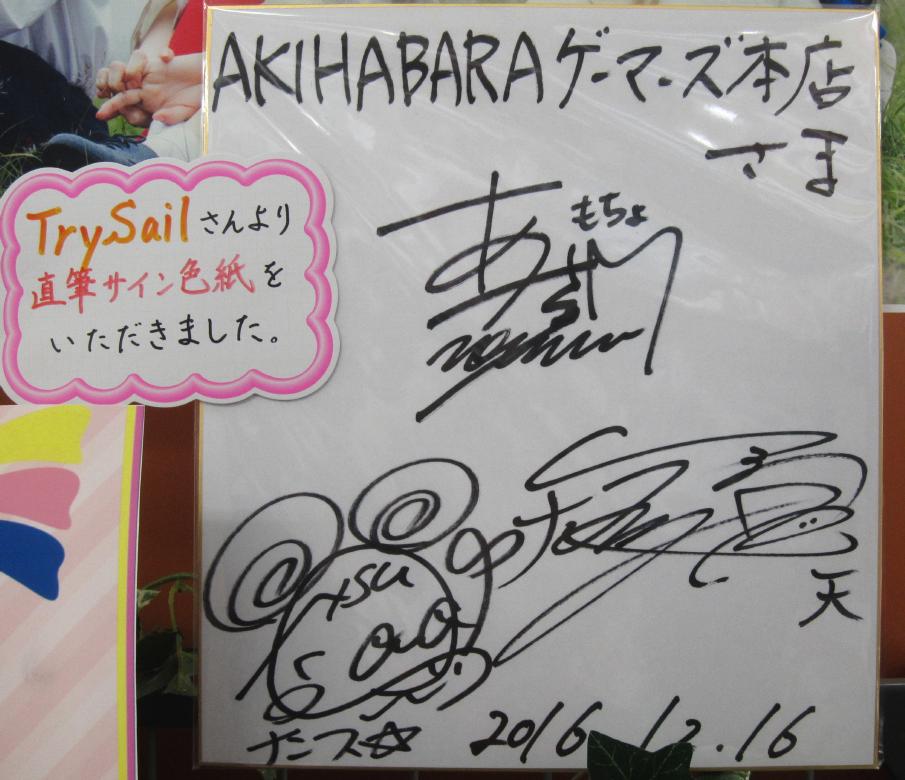 AKIHABARAゲーマーズ本店
さま
TrySailさんより
直筆サイン色紙を
いただきました。
もちょ
天
ナンス☆
2016.12.16